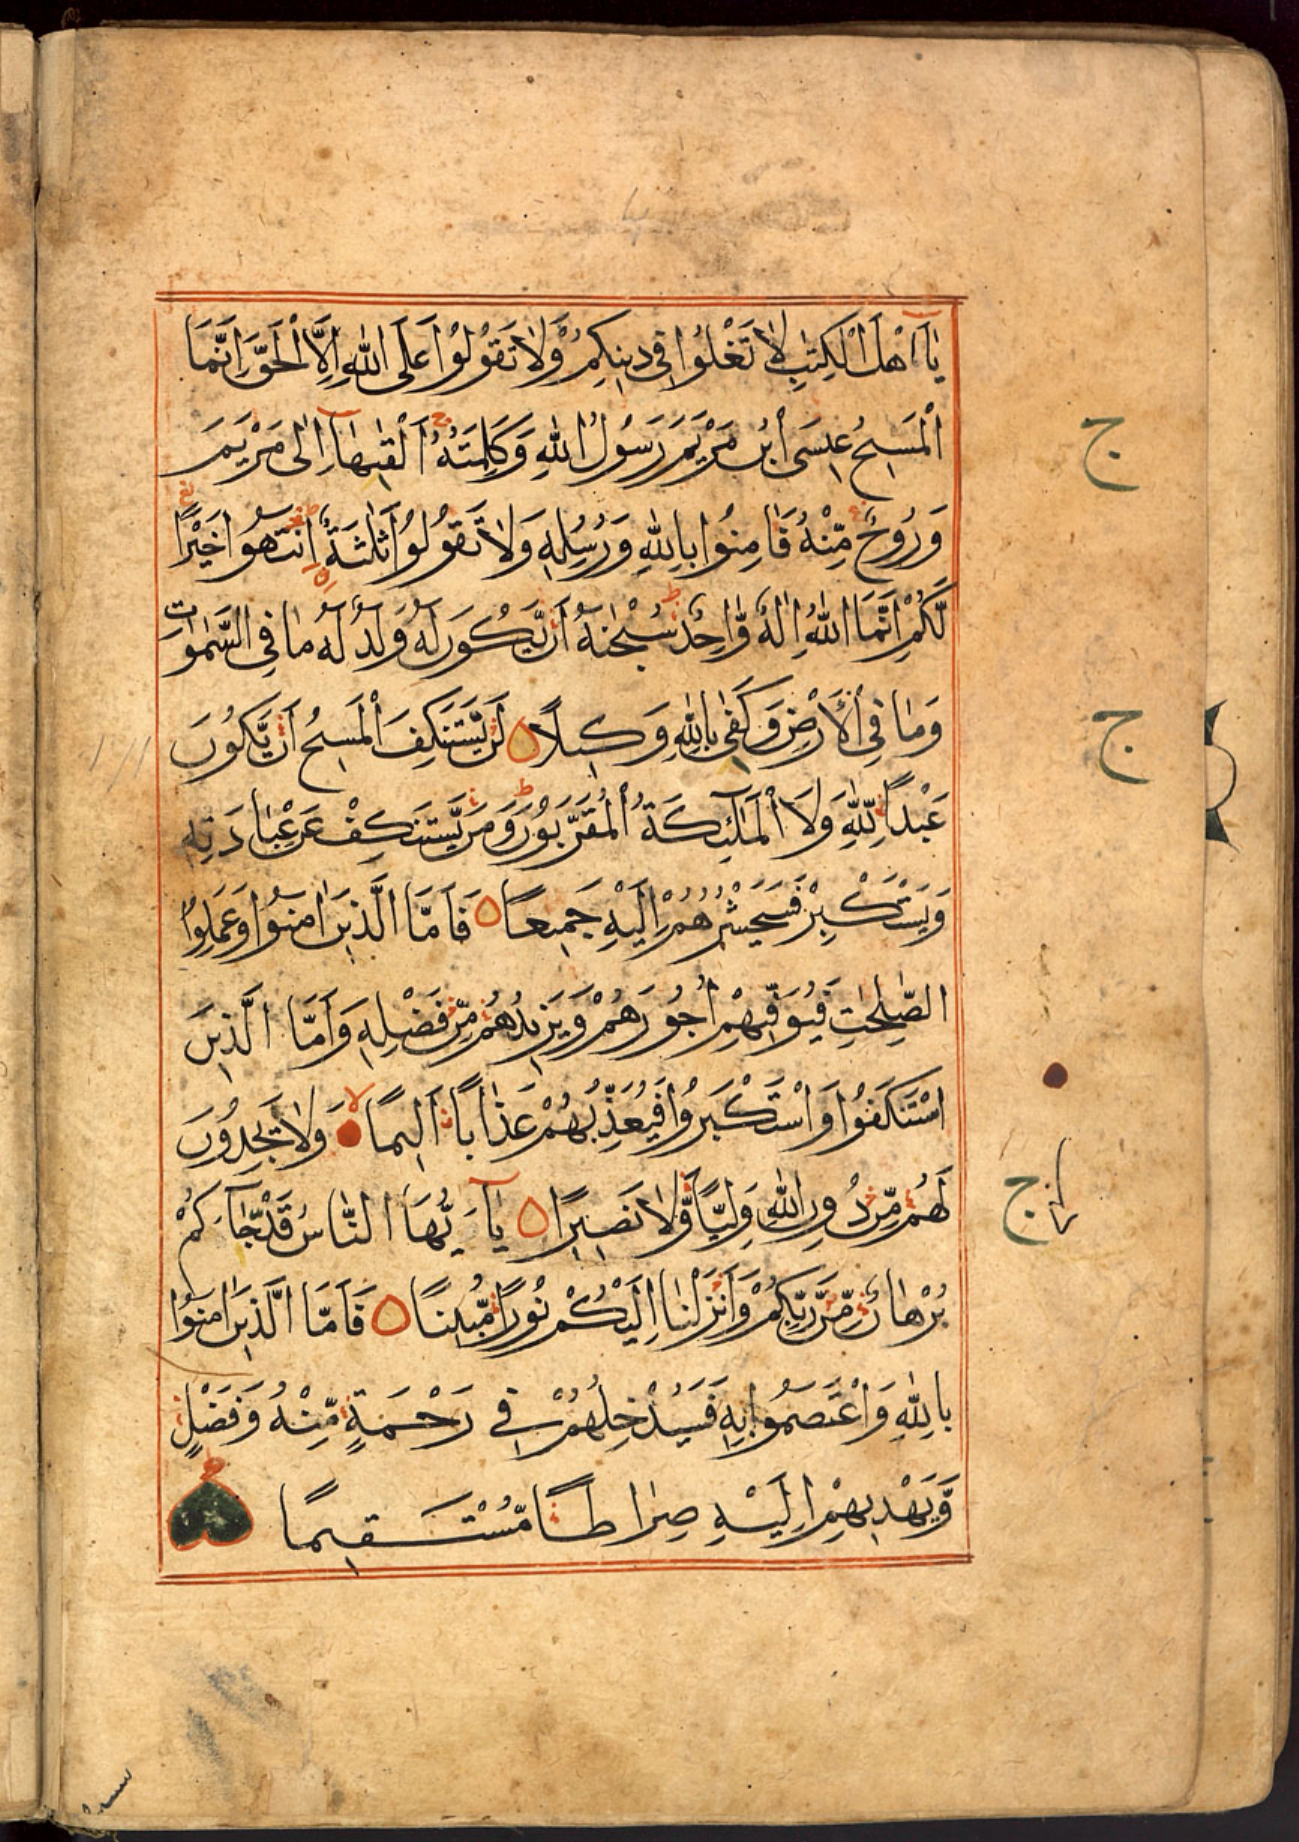 يٰٓاَهْلَ الْكِتٰبِ لَا تَغْلُوْا فِيْ دِيْنِكُمْ وَلَا تَقُوْلُوْا عَلَى اللّٰهِ اِلَّا الْحَقَّ اِنَّمَا
الْمَسِيْحُ عِيْسَى ابْنُ مَرْيَمَ رَسُوْلُ اللّٰهِ وَكَلِمَتُهٗ اَلْقٰىهَآ اِلٰى مَرْيَمَ
ج
وَرُوْحٌ مِّنْهُ فَاٰمِنُوْا بِاللّٰهِ وَرُسُلِهٖ وَلَا تَقُوْلُوْا ثَلٰثَةٌ اِنْتَهُوْا خَيْرًا
لَّكُمْ اِنَّمَا اللّٰهُ اِلٰهٌ وَّاحِدٌ سُبْحٰنَهٗ اَنْ يَّكُوْنَ لَهٗ وَلَدٌ لَهٗ مَا فِي السَّمٰوٰتِ
وَمَا فِي الْاَرْضِ وَكَفٰى بِاللّٰهِ وَكِيْلًا لَنْ يَّسْتَنْكِفَ الْمَسِيْحُ اَنْ يَّكُوْنَ
ج
عَبْدًا لِّلّٰهِ وَلَا الْمَلٰٓئِكَةُ الْمُقَرَّبُوْنَ وَمَنْ يَّسْتَنْكِفْ عَنْ عِبَادَتِهٖ
وَيَسْتَكْبِرْ فَسَيَحْشُرُهُمْ اِلَيْهِ جَمِيْعًا فَاَمَّا الَّذِيْنَ اٰمَنُوْا وَعَمِلُوا
الصّٰلِحٰتِ فَيُوَفِّيْهِمْ اُجُوْرَهُمْ وَيَزِيْدُهُمْ مِّنْ فَضْلِهٖ وَاَمَّا الَّذِيْنَ
اسْتَنْكَفُوْا وَاسْتَكْبَرُوْا فَيُعَذِّبُهُمْ عَذَابًا اَلِيْمًا وَلَا يَجِدُوْنَ
لَهُمْ مِّنْ دُوْنِ اللّٰهِ وَلِيًّا وَّلَا نَصِيْرًا يٰٓاَيُّهَا النَّاسُ قَدْ جَآءَكُمْ
ج
بُرْهَانٌ مِّنْ رَّبِّكُمْ وَاَنْزَلْنَا اِلَيْكُمْ نُوْرًا مُّبِيْنًا فَاَمَّا الَّذِيْنَ اٰمَنُوْا
بِاللّٰهِ وَاعْتَصَمُوْا بِهٖ فَسَيُدْخِلُهُمْ فِيْ رَحْمَةٍ مِّنْهُ وَفَضْلٍ
وَّيَهْدِيْهِمْ اِلَيْهِ صِرَاطًا مُّسْتَقِيْمًا